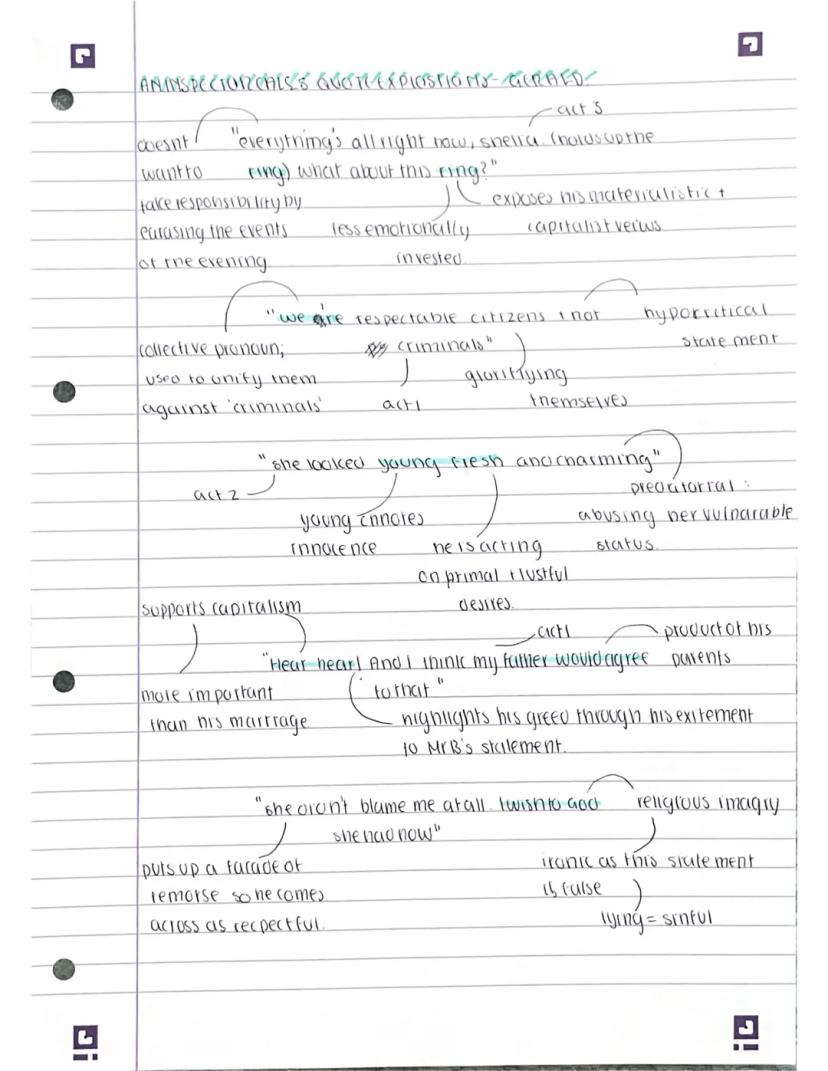 AN INSPECTOR CALLS QUOTE EXPLOSIONS - GERALD
act 3
doesnt "everything's all right now, sheila. (holds up the
want to ring) what about this ring?"
take responsibility by exposes his materialistic +
earasing the events less emotionally capitalist veiws
of the evening invested.
"we are respectable citizens + not hypocritical
collective pronoun; criminals" statement
used to unify them glorifiying
against 'criminals' act 1 themselves
"she looked young fresh and charming"
act 2 predatorial:
young innotes abusing her vulnarable
innocence he is acting status.
on primal + lustful
supports capitalism desires.
act 1 product of his
"Hear hear! And I think my father would agree parents
more important to that"
than his marrrage highlights his greed through his exitement
to Mr B's statement.
"she didn't blame me at all. I wish to God religious imagry
she had now"
puts up a facade of ironic as this statement
remorse so he comes is false
across as recpectful. lying = sinful